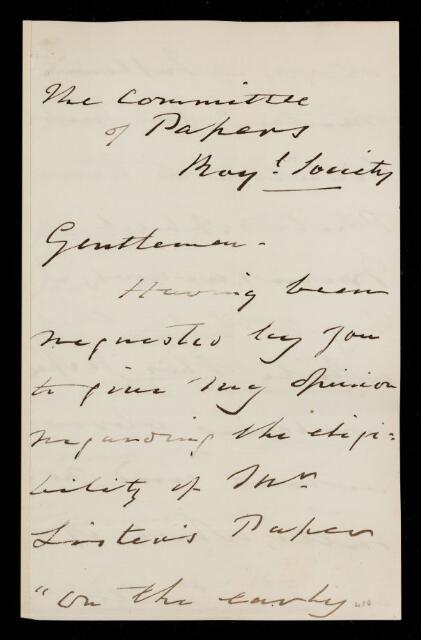 The Committee
of Papers
Roy.l Society
Gentlemen -
Having been
requested by you
to give my opinion
regarding the eligi=
bility of Mr
Lister's Paper
"On the early